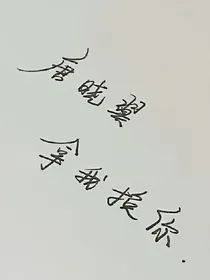 唐晓翼
拿我换你.